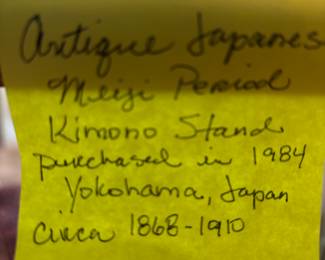 Antique Japanes
Meiji Period
Kimono Stand
purchased in 1984
Yokohama, Japan
Circa 1868-1910